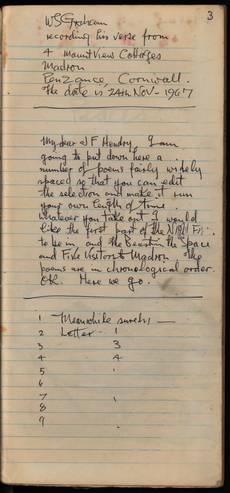 3
WS Graham
recording his verse from
4 Mountview Cottages
Madron
Penzance, Cornwall.
The date is 24th Nov - 1967
My dear J F Hendry, I am
going to put down here a
number of poems fairly widely
spaced so that you can edit
the selection and make it run
your own length of time.
Whatever you take out I would
like the first part of the Night Fi
to be in, and the Beast in the Space
and Five Visitors to Madron. The
poems are in chronological order.
OK. Here we go.
1 Meanwhile surely
2 Letter 1
3 3
4 4
5
6
7
8
9